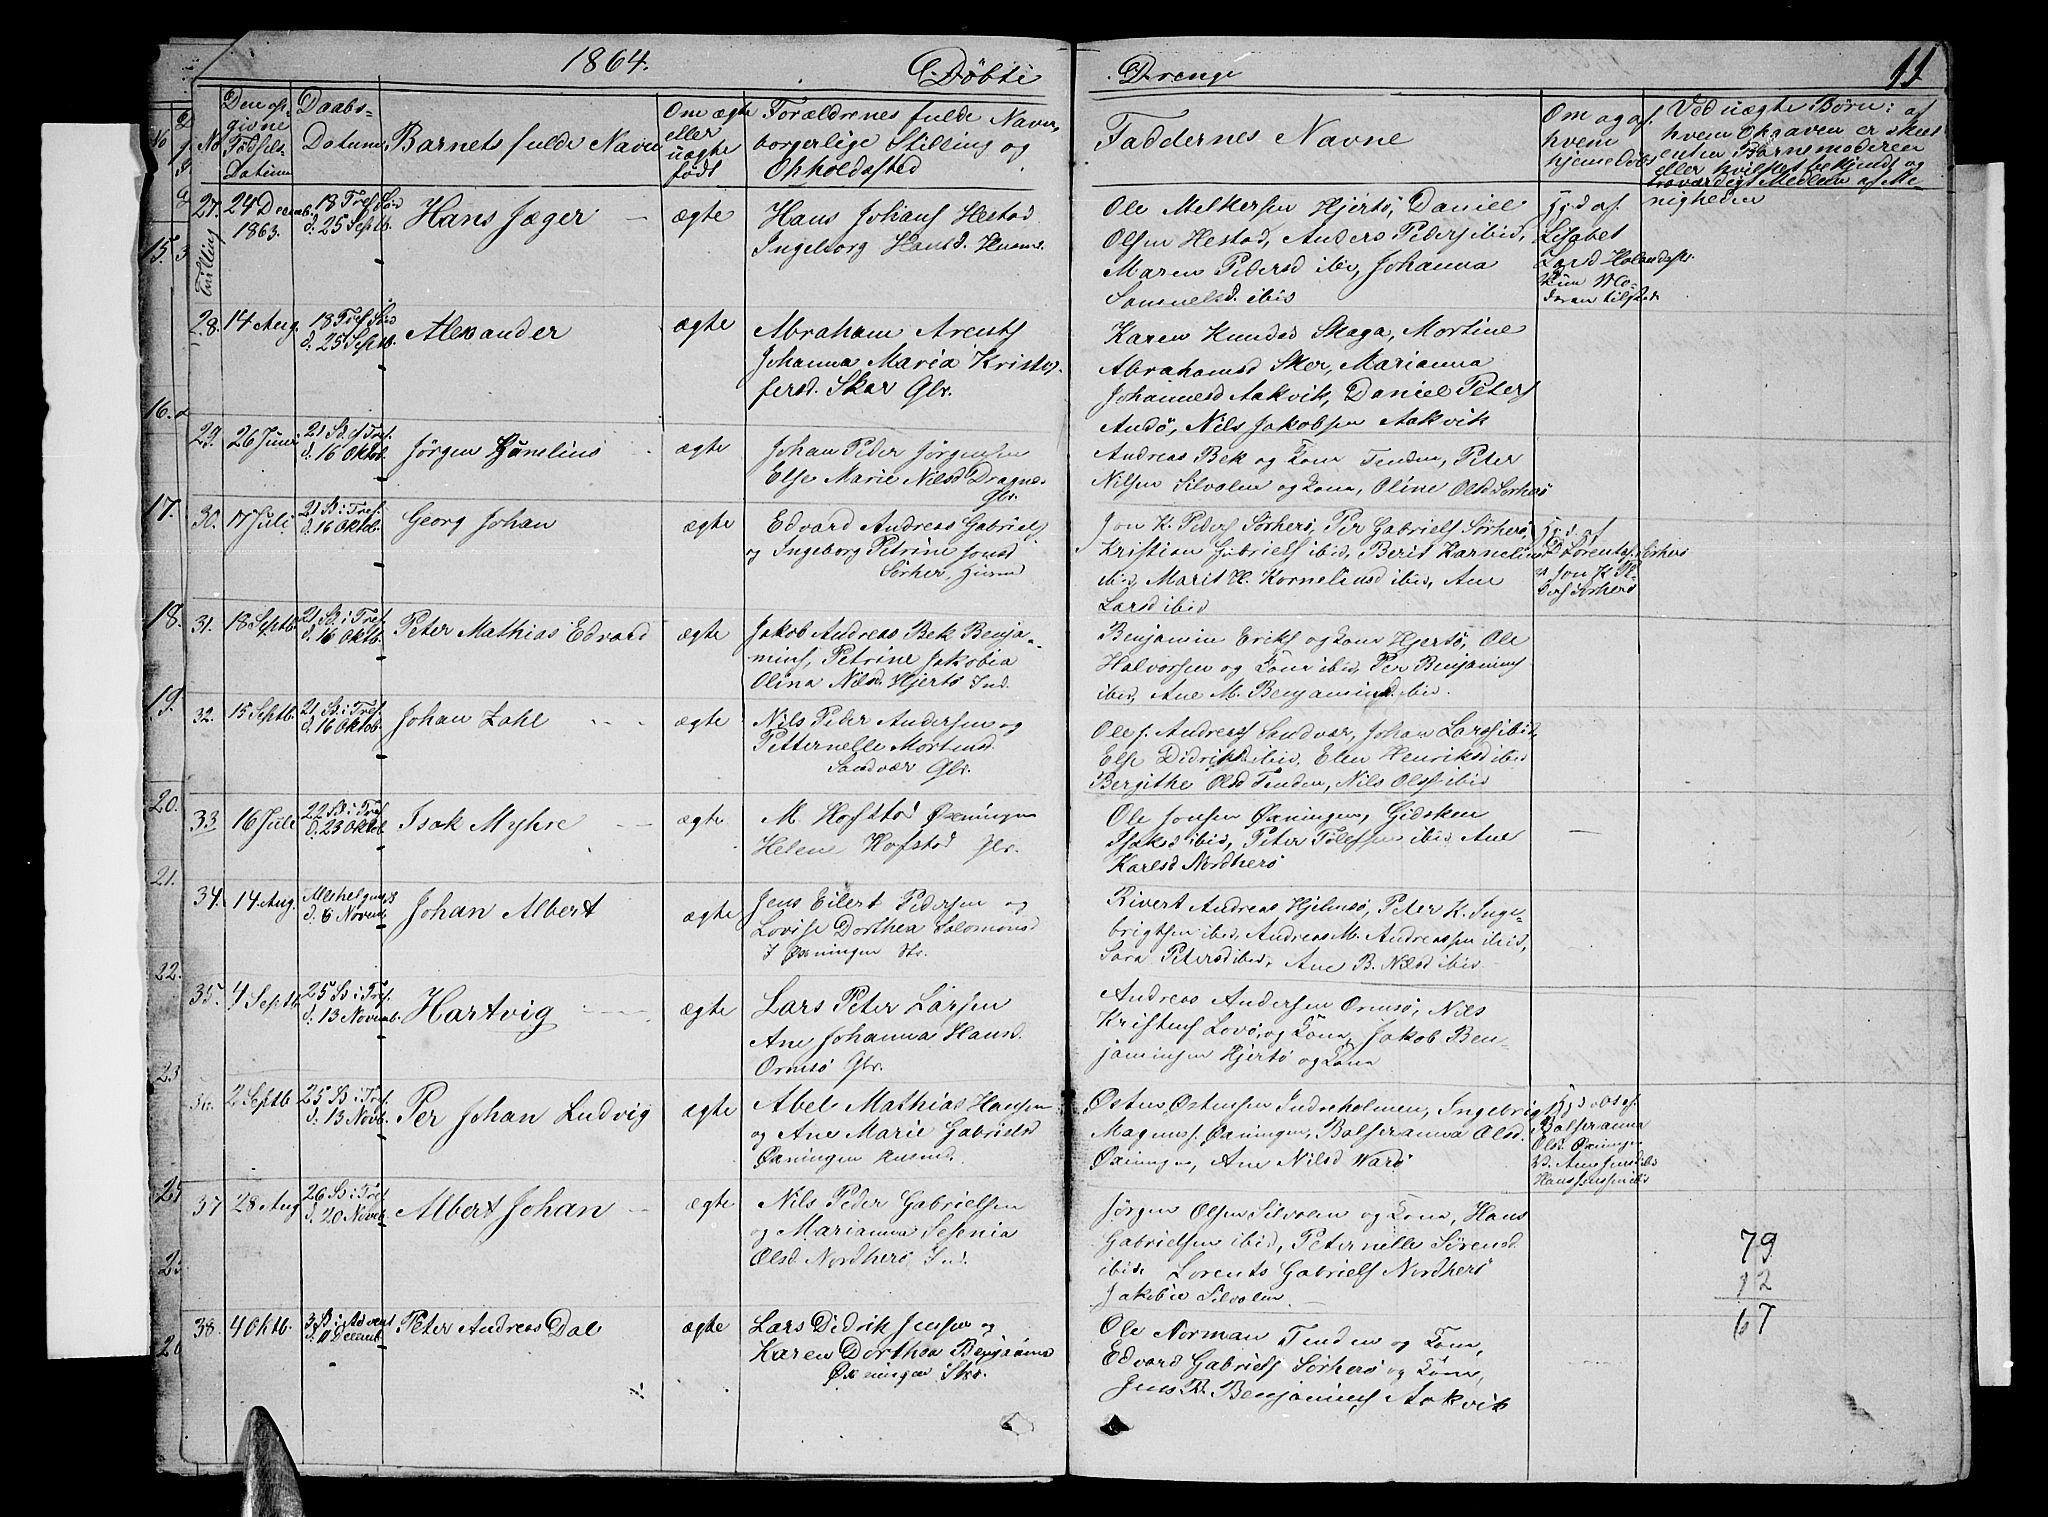 1864.
Døbte
Drenge
11
No
Den op-
givne
Fødsels-
Datum
Daabs-
Datum
Barnets fulde Navn
Om ægte
eller
uægte
født
Forældrenes fulde Navn,
borgerlige Stilling og
Opholdssted
Faddernes Navne
Om og af
hvem
hjemmedøbt
Ved uægte Børn: af
hvem Opgaven er skeet
enten Barnemoderen
eller hvilket bekjendt og
troværdigt Medlem af Me-
nigheden
27.
Tvilling
24 Decemb.
1863.
18 Tref. Søn
d. 25 Septb.
Hans Jæger
ægte
Hans Johans Hestad
Ingeborg Hansd. Husm.
Ole Melkersen Hjertø, Daniel
Olsen Hestad, Anders Peders ibid,
Maren Pedersd ibid, Johanna
Samuelsd. ibid
Hjd af
Lisabet
Larsd
28.
14 Aug.
18 Tref. Søn
d. 25 Septb.
Alexander
ægte
Abraham Arents
Johanna Maria Kristof-
fersd. Skar Gbr.
Karen Knudsd Skaga, Mortine
Abrahamsd Sker, Marianna
Johannesd Aakvik, Daniel Peters
Andø, Nils Jakobsen Aakvik
29.
26 Juni
21 S. ef Tref.
d. 16 Oktob.
Jørgen
ægte
Johan Peder Jørgensen
Else Marie Nilsd Dragnes
Gbr.
Andreas Bek og Kona Tenden, Peter
Nilsen Silvalen og Kona, Oline Olsd Sørherø
30.
17 Juli
21 S. i Tref.
d. 16 Oktob.
Georg Johan
ægte
Edvard Andreas Gabriels
og Ingeborg Petrine Jonsd
Sørher, Husmd
Jon K. Peders Sørherø, Per Gabriels Sørherø,
Kristian Gabriels ibid, Berit Kornelius
ibid, Marit H. Korneliusd ibid, Ane
Larsd ibid
Hjd. af
Lorents Sørherø
Jon K. Pe-
ders Sørherø
31.
18 Septb.
21 S. i Tref.
d. 16 Oktb.
Peter Mathias Edvard
ægte
Jakob Andreas Bek Benja-
mins, Petrine Jakobia
Olina Nilsd. Hjertø Ind.
Benjamin Eriks og Kona Hjertø, Ole
Halvorsen og Kona ibid, Per Benjamins
ibid, Ane M. Benjaminsd. ibid.
32.
15 Septb.
21 S. i Tref.
d. 16 Oktob.
Johan Zahl
ægte
Nils Peder Andersen og
Petternelle Mortensd.
Sandvær Gbr.
Ole J. Andreas Sandvær, Johan Lars ibid,
Else Didriksd ibid, Elen Henriksd ibid
Bergithe Olsd Tenden, Nils Ols ibid
33
16 Juli
22 S. i Tref
d. 23 Oktob.
Isak Myhre
ægte
M. Hofstad Øxningen
Helene Hofstad Gbr.
Ole Jonsen Øxningen, Gidsken
Isaksd ibid, Peter Tollefsen ibid, Ane
Karlsd Nordherø
34.
14 Aug.
Allehelgens
d. 6 Novemb.
Johan Albert
ægte
Jens Eilert Pedersen og
Lovise Dorthea Salomonsd
Øxningen
Andreas Hjelmsø, Peter K. Inge-
brigtsen ibid, Andreas M. Andreassen ibid,
Sara Petersd ibid, Ane B. Nilsd ibid
35.
4 Septb
25 S. i Tref.
d. 13 Novemb.
Hartvig
ægte
Lars Peter Larsen
Ane Johanna Hansd.
Ormsø Gbr.
Andreas Andersen Ormsø, Nils
Kristens Lovø, og Kona, Jakob Ben-
jaminsen Hjertø og Kona
36.
2 Septb
25 S. i Tref.
d. 13 Novb.
Per Johan Ludvig
ægte
Abel Mathias Hansen
og Ane Marie Gabrielsd
Øxningen Husmd.
Østen Østensen Indreholmen, Ingebrigt
Magnus. Øxningen, Balseranna Olsd.
Øxningen, Ane Nilsd Warø
Balseranna
Olsd. Øxningen
Hans Jenssen ibid
37
28 Aug
26 S. i Tref
d. 20 Novb.
Albert Johan
ægte
Nils Peder Gabrielsen
og Marianna Sesenia
Olsd. Nordherø, Ind.
Jørgen Olsen Silvalen og Kona, Hans
Gabrielsen ibid, Peternelle Sørensd
ibid, Lorents Gabriels Nordherø
Jakobie Silvalen
38.
4 Oktb.
3 S. i Advent
d. 11 Decemb.
Peter Andreas Dal
ægte
Lars Didrik Jensen og
Karen Dorthea Benjamins
Øxningen
Ole Norman Tenden og Kona,
Edvard Gabriels Sørherø og Kona,
Jens B. Benjamins Aakvik
79
12
67
15.
16.
17.
18.
19.
20.
21.
22.
23